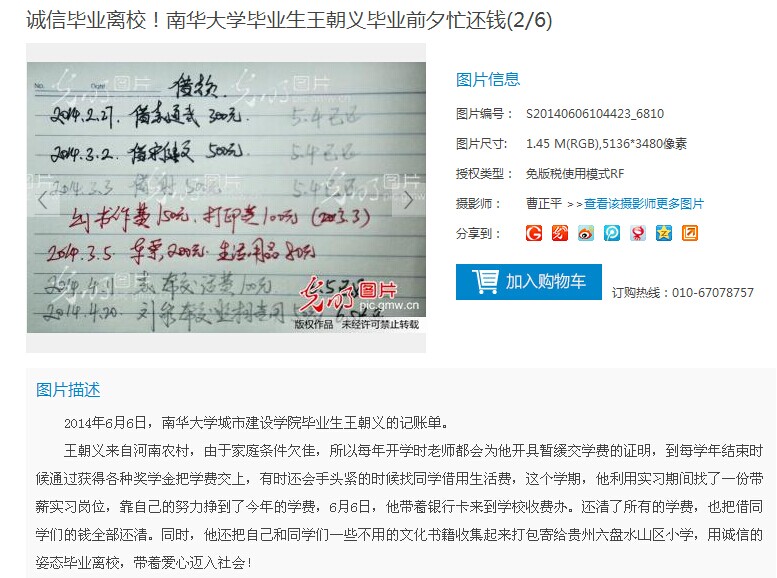 诚信毕业离校！南华大学毕业生王朝义毕业前夕忙还钱(2/6)
No.
借款
2014.2.27. 300元. 5.4已还
2014.3.2. 500元. 5.4已还
2014.3.3 5.4已还
费150元. 打印费100元 (2013.3)
2014.3.5. 车票200元. 生活用品80元
2014.4.1 费100元
2014.4.20.
光明图片
pic.gmw.cn
版权作品 未经许可禁止转载
图片信息
图片编号： S20140606104423_6810
图片尺寸: 1.45 M(RGB),5136*3480像素
授权类型： 免版税使用模式RF
摄影师： 曹正平 >>查看该摄影师更多图片
分享到：
加入购物车 订购热线：010-67078757
图片描述
2014年6月6日，南华大学城市建设学院毕业生王朝义的记账单。
王朝义来自河南农村，由于家庭条件欠佳，所以每年开学时老师都会为他开具暂缓交学费的证明，到每学年结束时
候通过获得各种奖学金把学费交上，有时还会手头紧的时候找同学借用生活费，这个学期，他利用实习期间找了一份带
薪实习岗位，靠自己的努力挣到了今年的学费，6月6日，他带着银行卡来到学校收费办。还清了所有的学费，也把借同
学们的钱全部还清。同时，他还把自己和同学们一些不用的文化书籍收集起来打包寄给贵州六盘水山区小学，用诚信的
姿态毕业离校，带着爱心迈入社会！